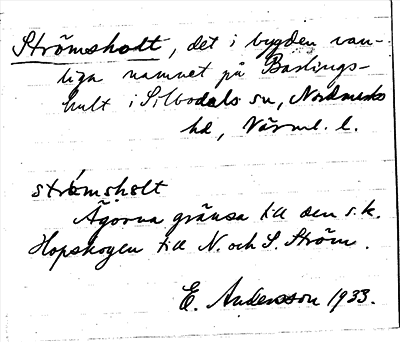 Strömsholt, det i bygden van-
liga namnet på Barlings-
hult i Silbodals sn, Nordmarks
hd, Värml. l.
strömsholt
Ägorna gränsa till den s.k.
Hopskogen till N. och S. Ström.
E. Andersson 1933.